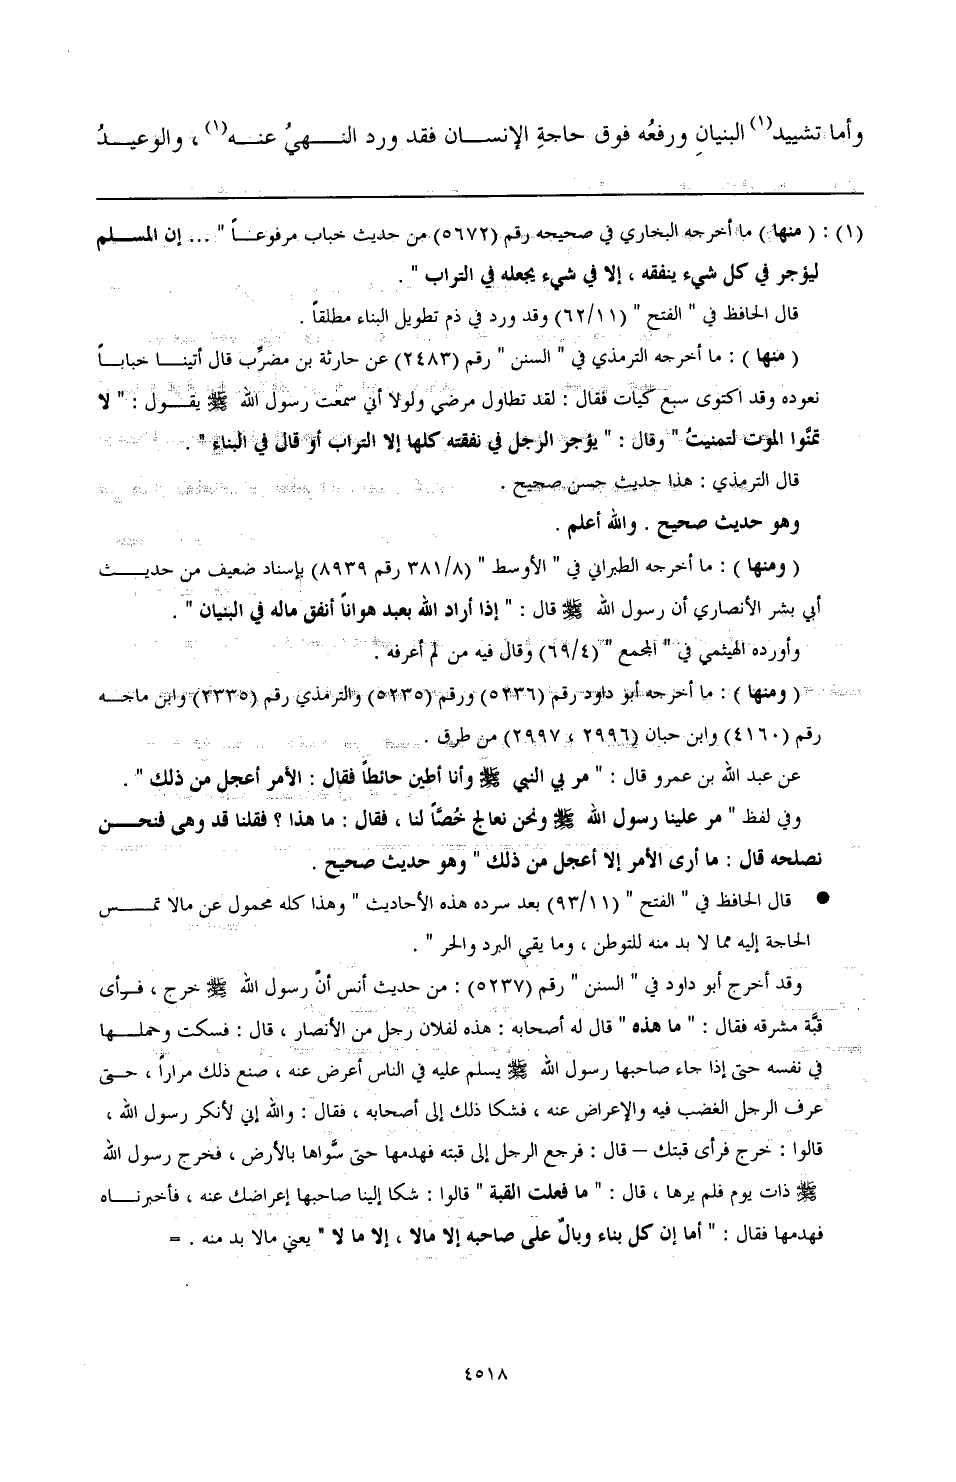 وأما تشييد(١) البنيانِ ورفعُه فوق حاجةِ الإنسان فقد ورد النهيُ عنه(١) ، والوعيدُ
(١) : ( منها ) ما أخرجه البخاري في صحيحه رقم (٥٦٧٢) من حديث خباب مرفوعاً " ... إن المسلم
ليؤجر في كل شيء ينفقه ، إلا في شيء يجعله في التراب " .
قال الحافظ في " الفتح " (٦٢/١١) وقد ورد في ذم تطويل البناء مطلقاً .
( منها ) : ما أخرجه الترمذي في " السنن " رقم (٢٤٨٣) عن حارثة بن مضرِّب قال أتينا خباباً
نعوده وقد اكتوى سبع كيات فقال : لقد تطاول مرضي ولولا أني سمعت رسول الله ﷺ يقول : " لا
تمنَّوا الموت لتمنيتُ " وقال : " يؤجر الرجل في نفقته كلها إلا التراب أو قال في البناء " .
قال الترمذي : هذا حديث حسن صحيح .
وهو حديث صحيح . والله أعلم .
( ومنها ) : ما أخرجه الطبراني في " الأوسط " (٣٨١/٨ رقم ٨٩٣٩) بإسناد ضعيف من حديث
أبي بشر الأنصاري أن رسول الله ﷺ قال : " إذا أراد الله بعبد هواناً أنفق ماله في البنيان " .
وأورده الهيثمي في " المجمع " (٦٩/٤) وقال فيه من لم أعرفه .
( ومنها ) : ما أخرجه أبو داود رقم (٥٢٣٦) ورقم (٥٢٣٥) والترمذي رقم (٢٣٣٥) وابن ماجه
رقم (٤١٦٠) وابن حبان (٢٩٩٦ ، ٢٩٩٧) من طرق .
عن عبد الله بن عمرو قال : " مر بي النبي ﷺ وأنا أطين حائطاً فقال : الأمر أعجل من ذلك " .
وفي لفظ " مر علينا رسول الله ﷺ ونحن نعالج خُصَّاً لنا ، فقال : ما هذا ؟ فقلنا قد وهى فنحن
نصلحه قال : ما أرى الأمر إلا أعجل من ذلك " وهو حديث صحيح .
● قال الحافظ في " الفتح " (٩٣/١١) بعد سرده هذه الأحاديث " وهذا كله محمول عن مالا تمس
الحاجة إليه مما لا بد منه للتوطن ، وما يقي البرد والحر " .
وقد أخرج أبو داود في " السنن " رقم (٥٢٣٧) : من حديث أنس أنَّ رسول الله ﷺ خرج ، فرأى
قبَّة مشرفه فقال : " ما هذه " قال له أصحابه : هذه لفلان رجل من الأنصار ، قال : فسكت وحملها
في نفسه حتى إذا جاء صاحبها رسول الله ﷺ يسلم عليه في الناس أعرض عنه ، صنع ذلك مراراً ، حتى
عرف الرجل الغضب فيه والإعراض عنه ، فشكا ذلك إلى أصحابه ، فقال : والله إني لأنكر رسول الله ،
قالوا : خرج فرأى قبتك – قال : فرجع الرجل إلى قبته فهدمها حتى سوَّاها بالأرض ، فخرج رسول الله
ﷺ ذات يوم فلم يرها ، قال : " ما فعلت القبة " قالوا : شكا إلينا صاحبها إعراضك عنه ، فأخبرناه
فهدمها فقال : " أما إن كل بناء وبالّ على صاحبه إلا مالا ، إلا ما لا " يعني مالا بد منه . =
٤٥١٨